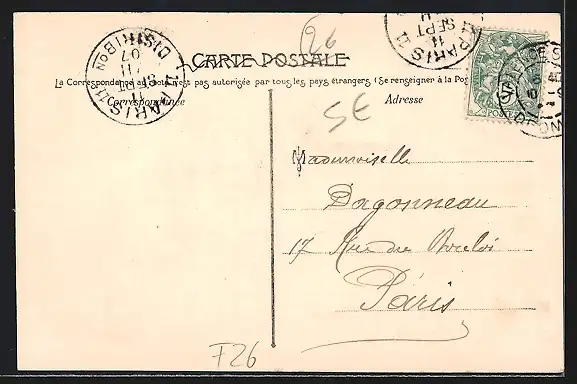 26
CARTE POSTALE
La Correspondance au recto n'est pas autorisée par tous les pays étrangers (Se renseigner à la Pos
Correspondance
Adresse
PARIS 11
DISTRIBON
07
PARIS 11
11
SEPT
VALENCE
POSTES
SE
Mademoiselle
Dagonneau
17 Rue du
Paris
F26